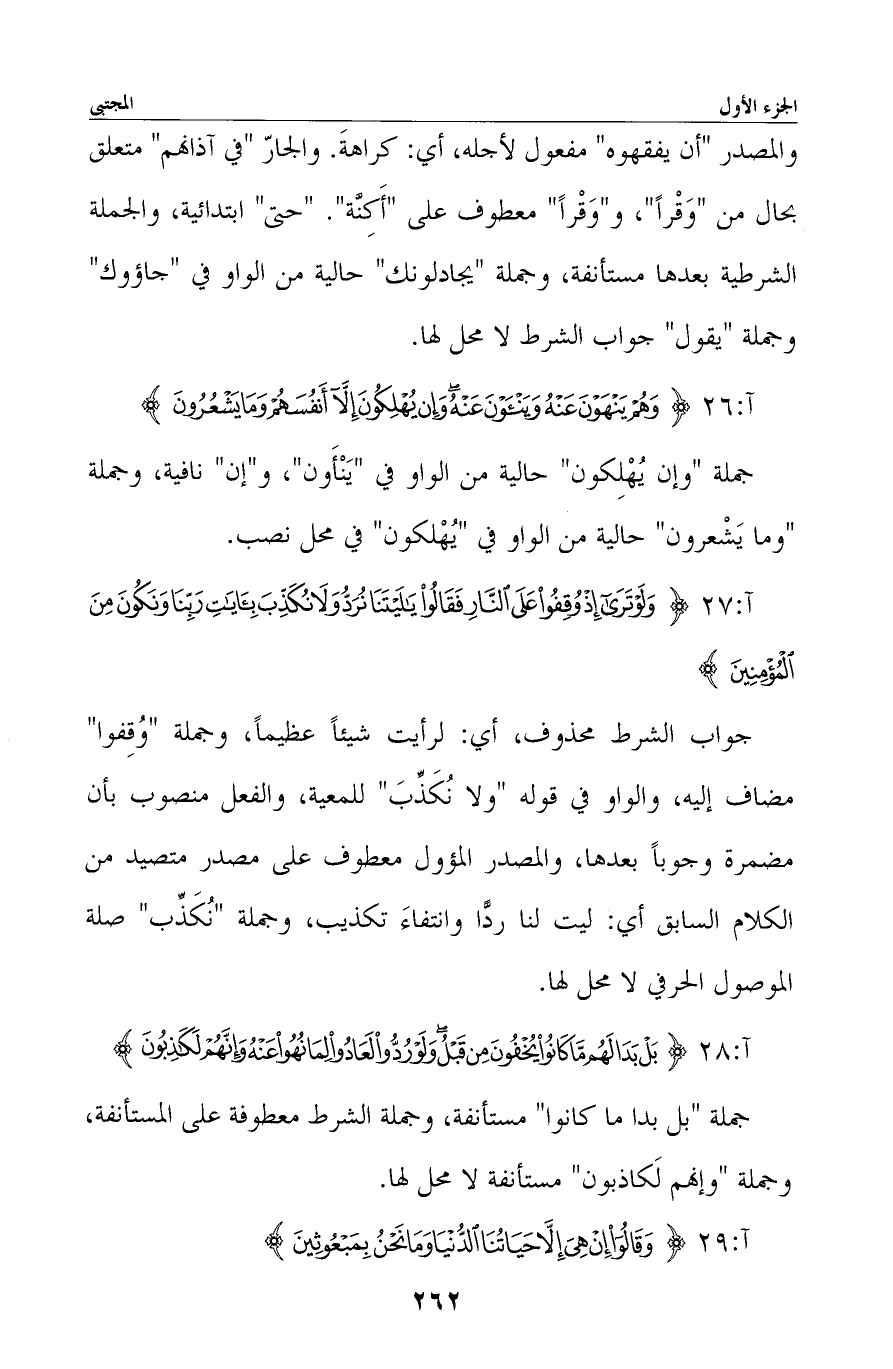 الجزء الأول
المجتبى
والمصدر "أن يفقهوه" مفعول لأجله، أي: كراهةَ. والجارّ "في آذانهم" متعلق
بحال من "وَقْراً"، و"وَقْراً" معطوف على "أَكِنَّة". "حتى" ابتدائية، والجملة
الشرطية بعدها مستأنفة، وجملة "يجادلونك" حالية من الواو في "جاؤوك"
وجملة "يقول" جواب الشرط لا محل لها.
آ:٢٦ ﴿ وَهُمْ يَنْهَوْنَ عَنْهُ وَيَنْـَٔوْنَ عَنْهُ ۖ وَإِن يُهْلِكُونَ إِلَّآ أَنفُسَهُمْ وَمَا يَشْعُرُونَ ﴾
جملة "وإن يُهْلِكون" حالية من الواو في "يَنْأَون"، و"إن" نافية، وجملة
"وما يَشْعرون" حالية من الواو في "يُهْلكون" في محل نصب.
آ:٢٧ ﴿ وَلَوْ تَرَىٰٓ إِذْ وُقِفُوا۟ عَلَى ٱلنَّارِ فَقَالُوا۟ يَٰلَيْتَنَا نُرَدُّ وَلَا نُكَذِّبَ بِـَٔايَٰتِ رَبِّنَا وَنَكُونَ مِنَ
ٱلْمُؤْمِنِينَ ﴾
جواب الشرط محذوف، أي: لرأيت شيئاً عظيماً، وجملة "وُقِفوا"
مضاف إليه، والواو في قوله "ولا نُكَذِّبَ" للمعية، والفعل منصوب بأن
مضمرة وجوباً بعدها، والمصدر المؤول معطوف على مصدر متصيد من
الكلام السابق أي: ليت لنا ردًّا وانتفاءَ تكذيب، وجملة "نُكَذِّب" صلة
الموصول الحرفي لا محل لها.
آ:٢٨ ﴿ بَلْ بَدَا لَهُم مَّا كَانُوا۟ يُخْفُونَ مِن قَبْلُ ۖ وَلَوْ رُدُّوا۟ لَعَادُوا۟ لِمَا نُهُوا۟ عَنْهُ وَإِنَّهُمْ لَكَٰذِبُونَ ﴾
جملة "بل بدا ما كانوا" مستأنفة، وجملة الشرط معطوفة على المستأنفة،
وجملة "وإنهم لَكاذبون" مستأنفة لا محل لها.
آ:٢٩ ﴿ وَقَالُوٓا۟ إِنْ هِىَ إِلَّا حَيَاتُنَا ٱلدُّنْيَا وَمَا نَحْنُ بِمَبْعُوثِينَ ﴾
٢٦٢